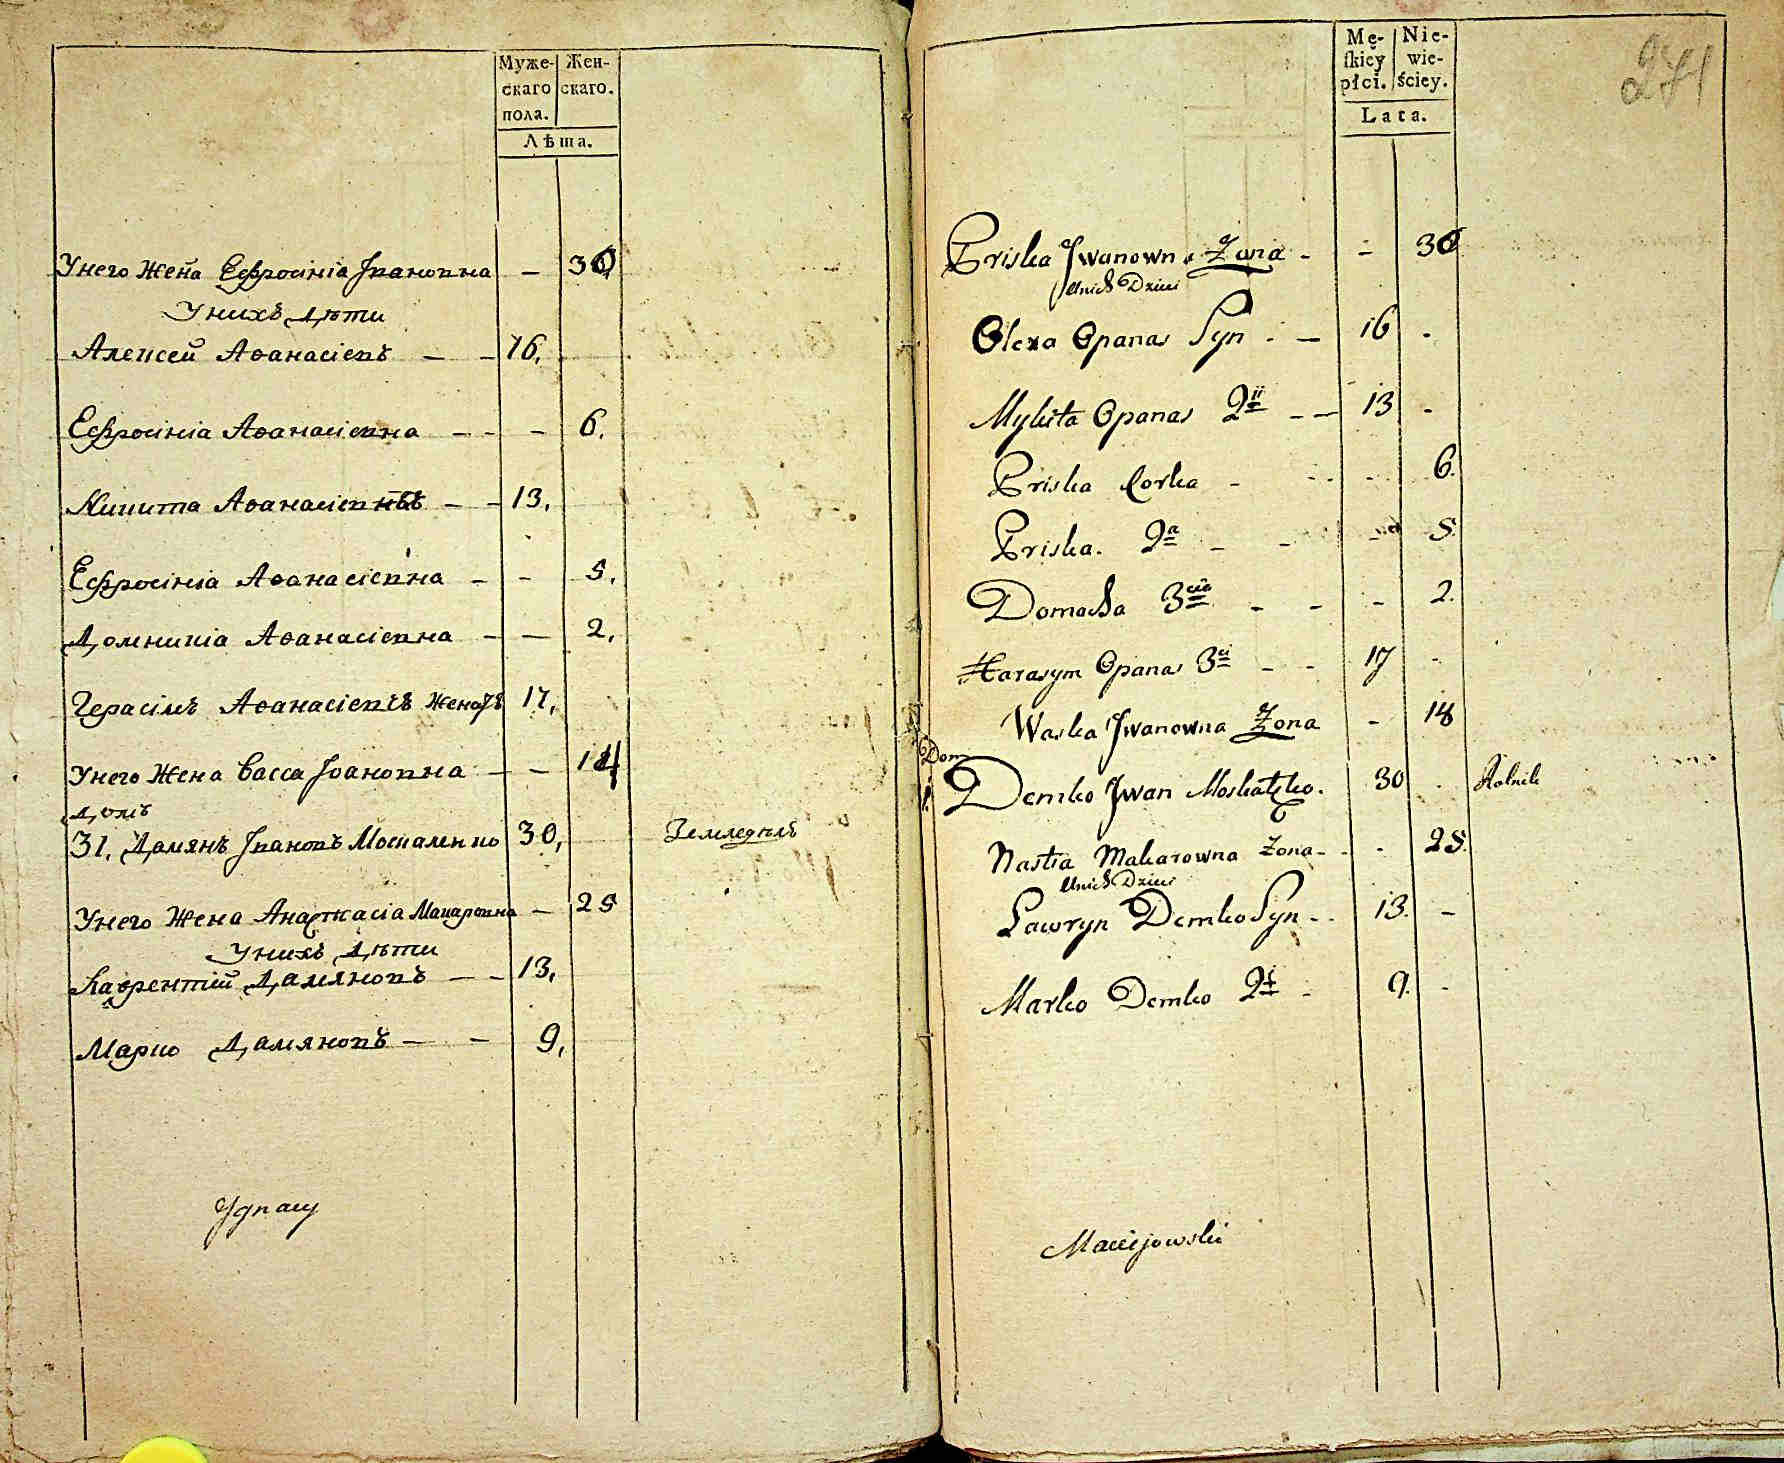 Муже-
скаго
пола.
Жен-
скаго.
Лѣта.
Унего жена Ефросиніа Івановна — 36
Унихъ дѣти
Алексей Аѳанасіевъ — — 16,
Ефросиніа Аѳанасіевна — — — 6,
Никита Аѳанасіевъ — — 13,
Ефросиніа Аѳанасіевна — — 5,
Домникіа Аѳанасіевна — — 2,
Герасімъ Аѳанасіевъ женатъ 17,
Унего жена Васса Іоановна — — 14
Домъ
31, Дамянъ Івановъ Москаленко 30, Земледѣлъ
Унего жена Анастасіа Макаровна — 25
Унихъ дѣти
Лаврентій Дамяновъ — — 13,
Марко Дамяновъ — — 9,
Ignacy
271
Mę-
ſkiey
płci.
Nie-
wie-
ściey.
Lata.
Priska Jwanowna Żona - - 36
Unich Dzieci
Olexa Opanas Syn - — 16 -
Mykita Opanas 2ii - — 13 -
Priska Corka - - - 6.
Priska. 2a - - - 5.
Domocha 3cia - - - 2.
Harasym Opanas 3ci - - 17 -
Waska Jwanowna Żona - 18
Dom
Demko Jwan Moskalko. 30 . Rolnik
Nastia Makarowna Żona - - 25.
Unich Dzieci
Lawryn Demko Syn - - 13. -
Marko Demko 2i - 9. -
Maciejowski